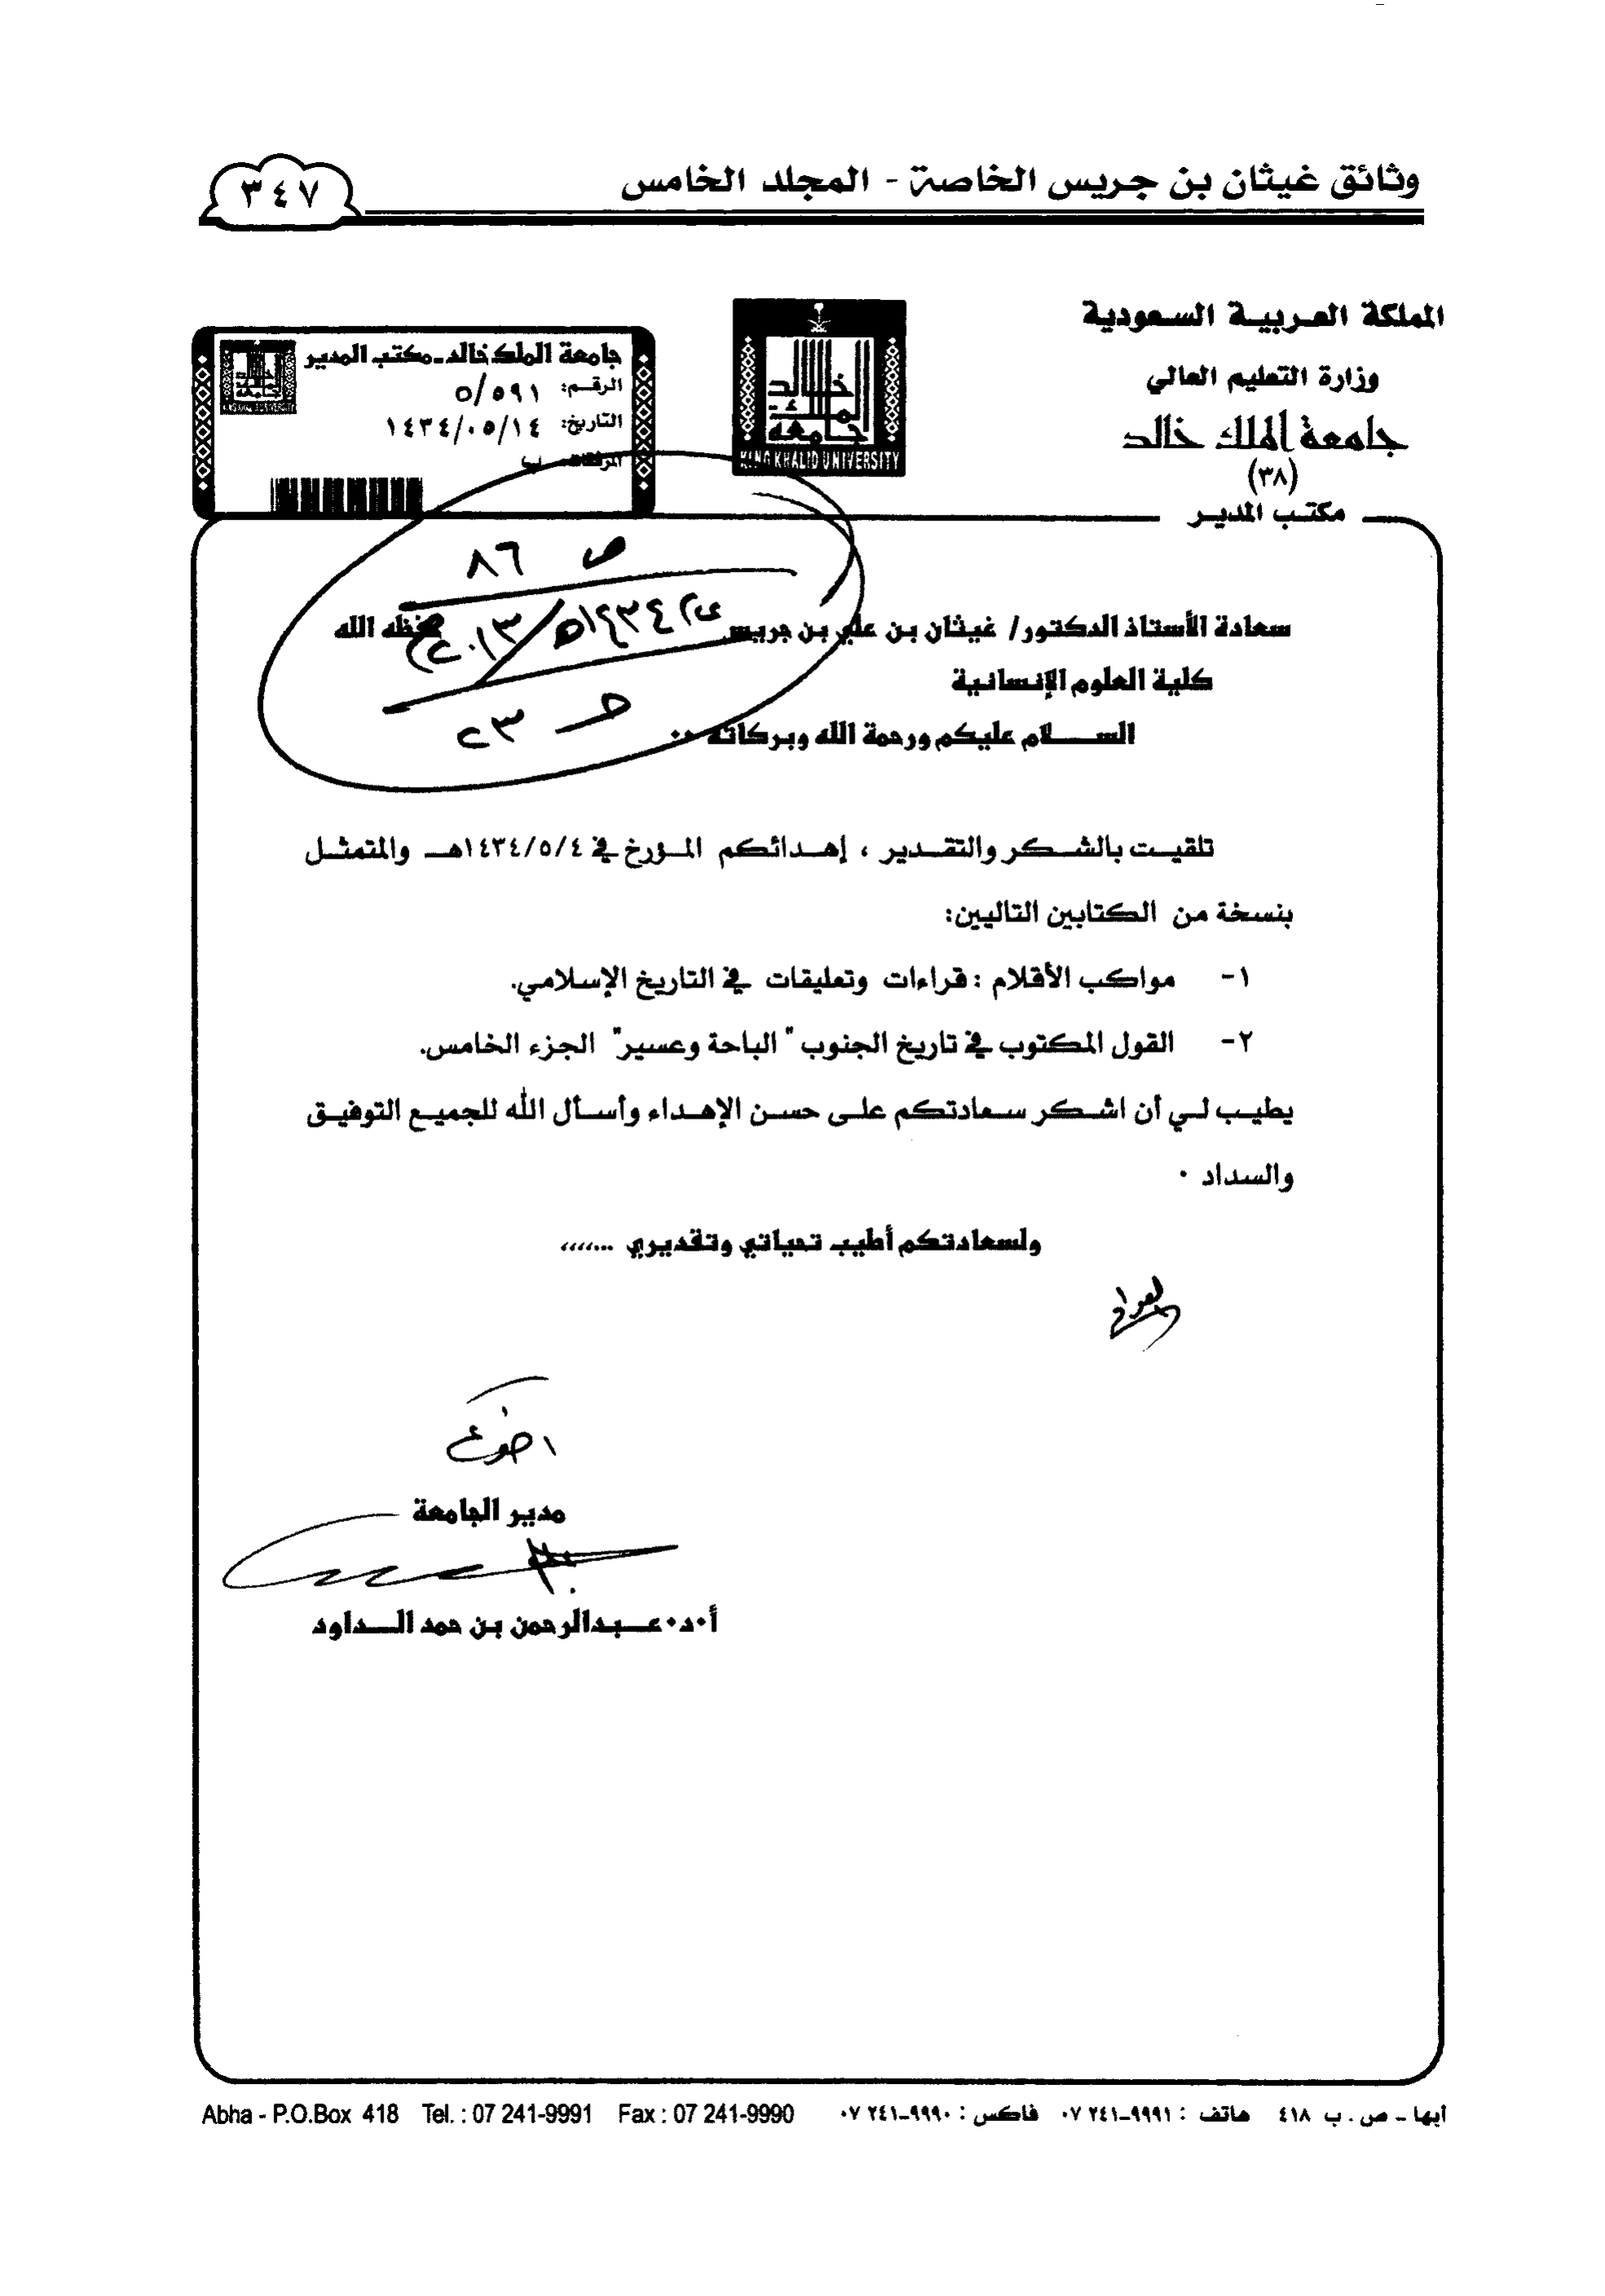 وثائق غيثان بن جريس الخاصة - المجلد الخامس
٣٤٧
المملكة العربية السعودية
وزارة التعليم العالي
جامعة الملك خالد
(٣٨)
مكتب المدير
خالد
الملك
جامعة
KING KHALID UNIVERSITY
جامعة الملك خالد - مكتب المدير
الرقم: ٥/٥٩١
التاريخ: ١٤٣٤/٠٥/١٤
المرفقات:
ص ٨٦
سعادة الأستاذ الدكتور/ غيثان بن علي بن جريس حفظه الله
كلية العلوم الإنسانية
السلام عليكم ورحمة الله وبركاته ..
تلقيت بالشكر والتقدير ، إهدائكم المؤرخ في ١٤٣٤/٥/٤هـ والمتمثل
بنسخة من الكتابين التاليين:
١- مواكب الأقلام : قراءات وتعليقات في التاريخ الإسلامي.
٢- القول المكتوب في تاريخ الجنوب " الباحة وعسير" الجزء الخامس.
يطيب لي أن اشكر سعادتكم على حسن الإهداء وأسأل الله للجميع التوفيق
والسداد ٠
ولسعادتكم أطيب تحياتي وتقديري ...،،،،
مدير الجامعة
أ٠د٠عبدالرحمن بن حمد الداود
أبها - ص . ب ٤١٨ هاتف : ٩٩٩١-٢٤١ ٠٧ فاكس : ٩٩٩٠-٢٤١ ٠٧
Abha - P.O.Box 418 Tel. : 07 241-9991 Fax : 07 241-9990